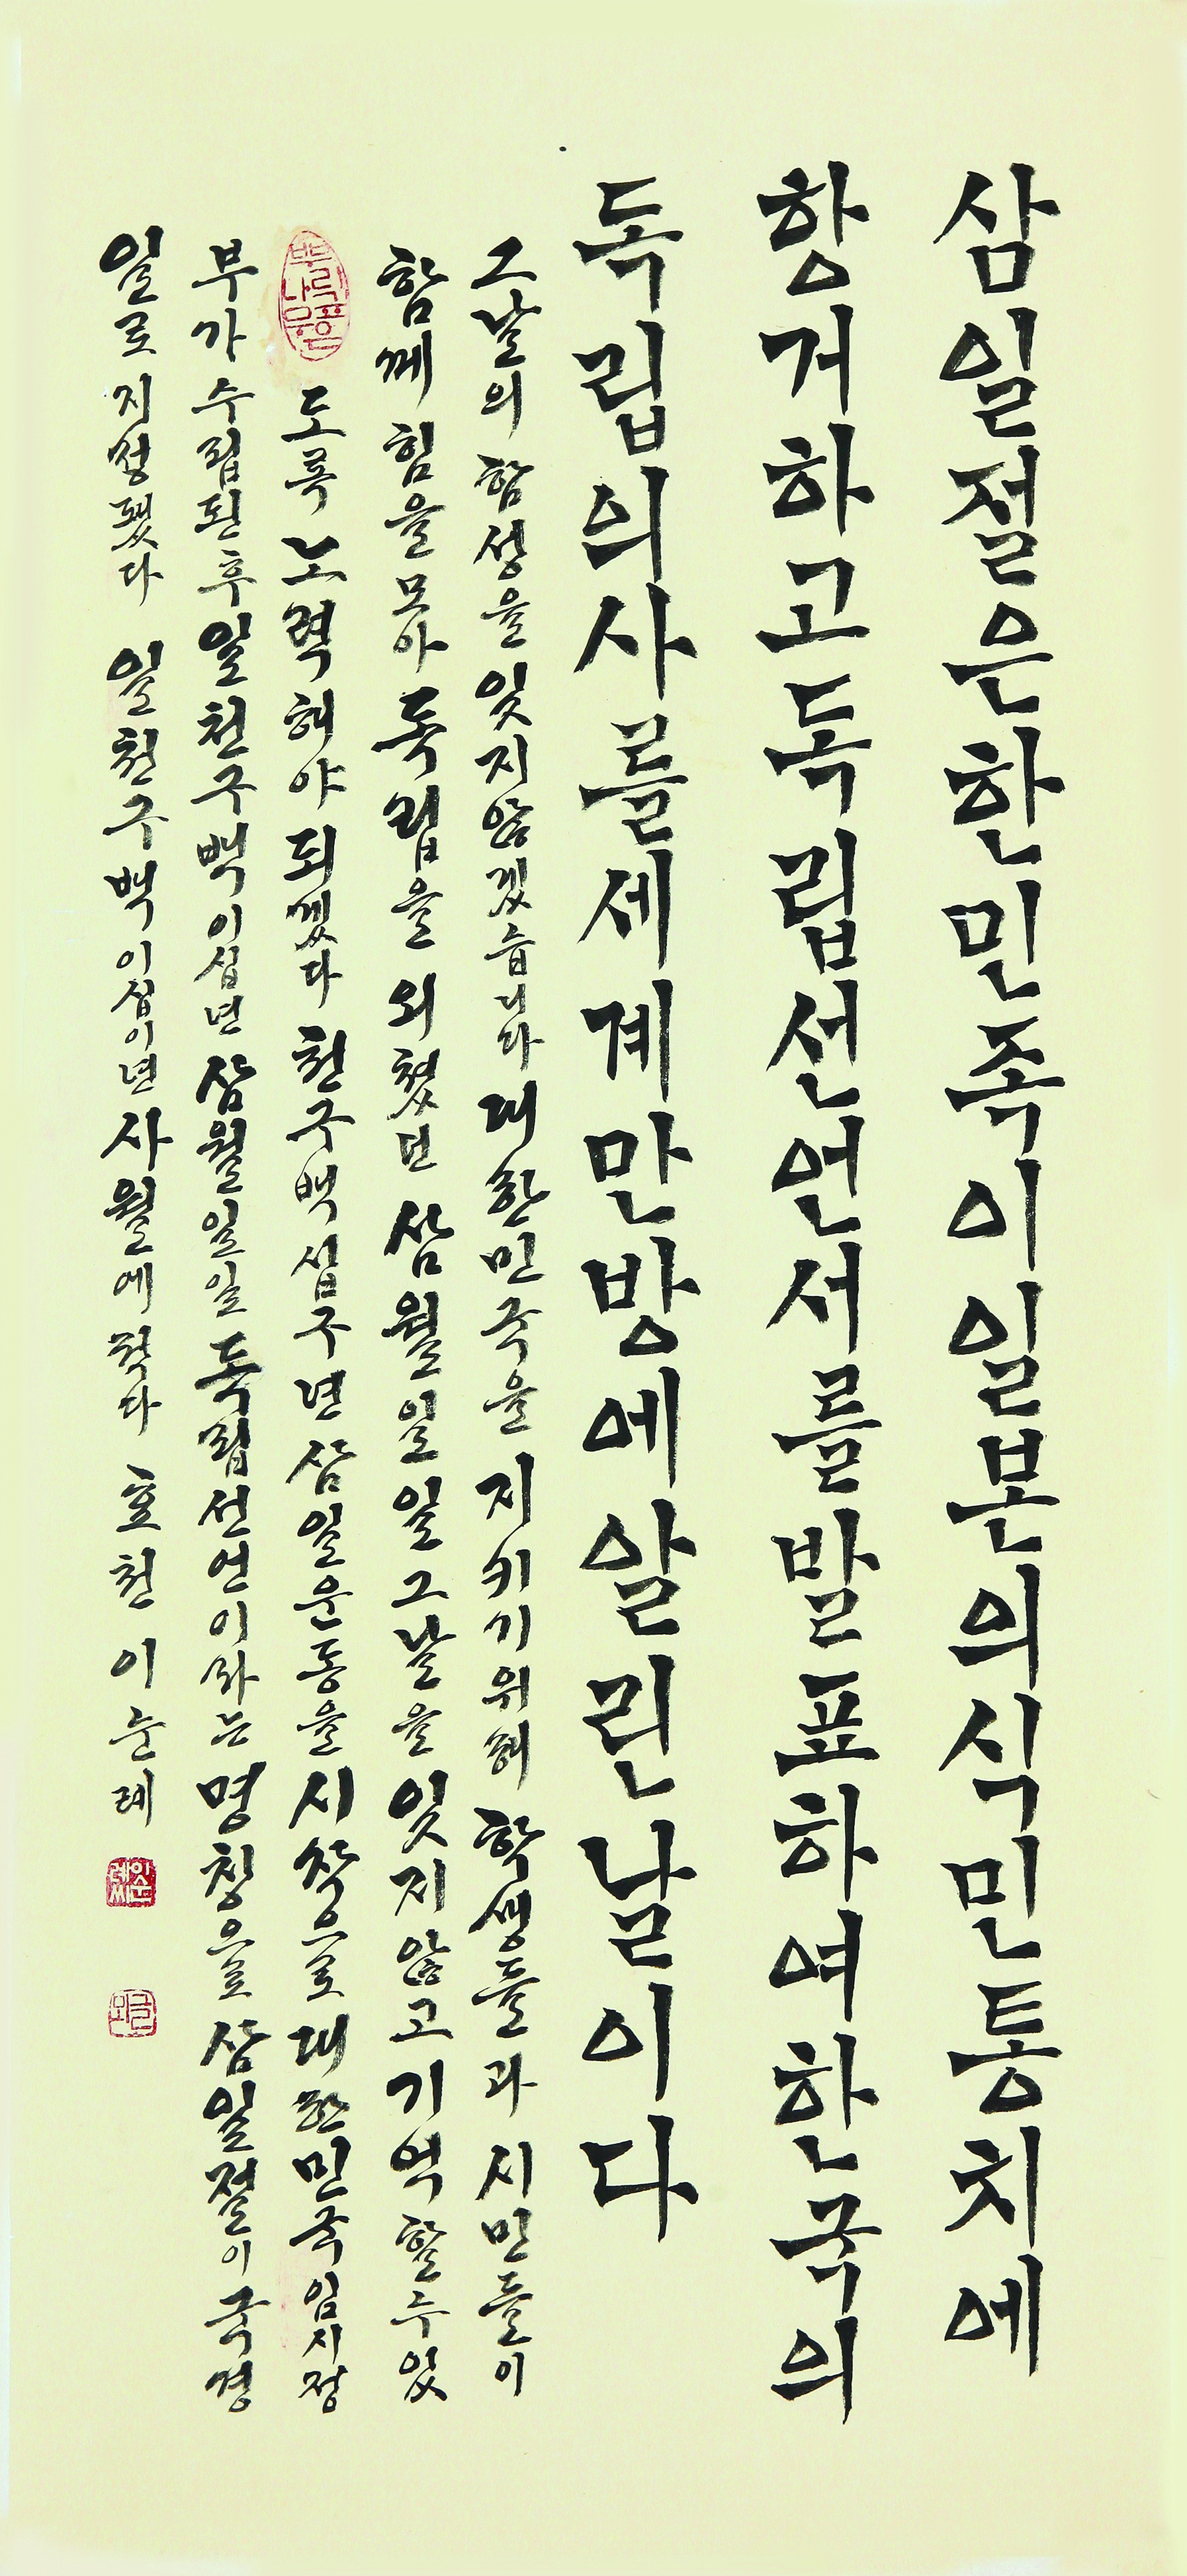 삼일절은한민족이일본의식민통치에
항거하고독립선언서를발표하여한국의
독립의사를세계만방에알린날이다
그날의 함성을 잊지 않겠습니다 대한민국을 지키기위해 학생들과 시민들이
함께 힘을 모아 독립을 외쳤던 삼월 일일 그날을 잊지 않고 기억할 수 있
도록 노력해야 되겠다 천구백십구년 삼일운동을 시작으로 대한민국 임시정
부가 수립된 후 일천구백이십년 삼월 일일 독립선언이라는 명칭으로 삼일절이 국경
일로 지정됐다 일천구백이십이년 사월에 적다 효천 이순례
뿌리 깊은 나무
이순례